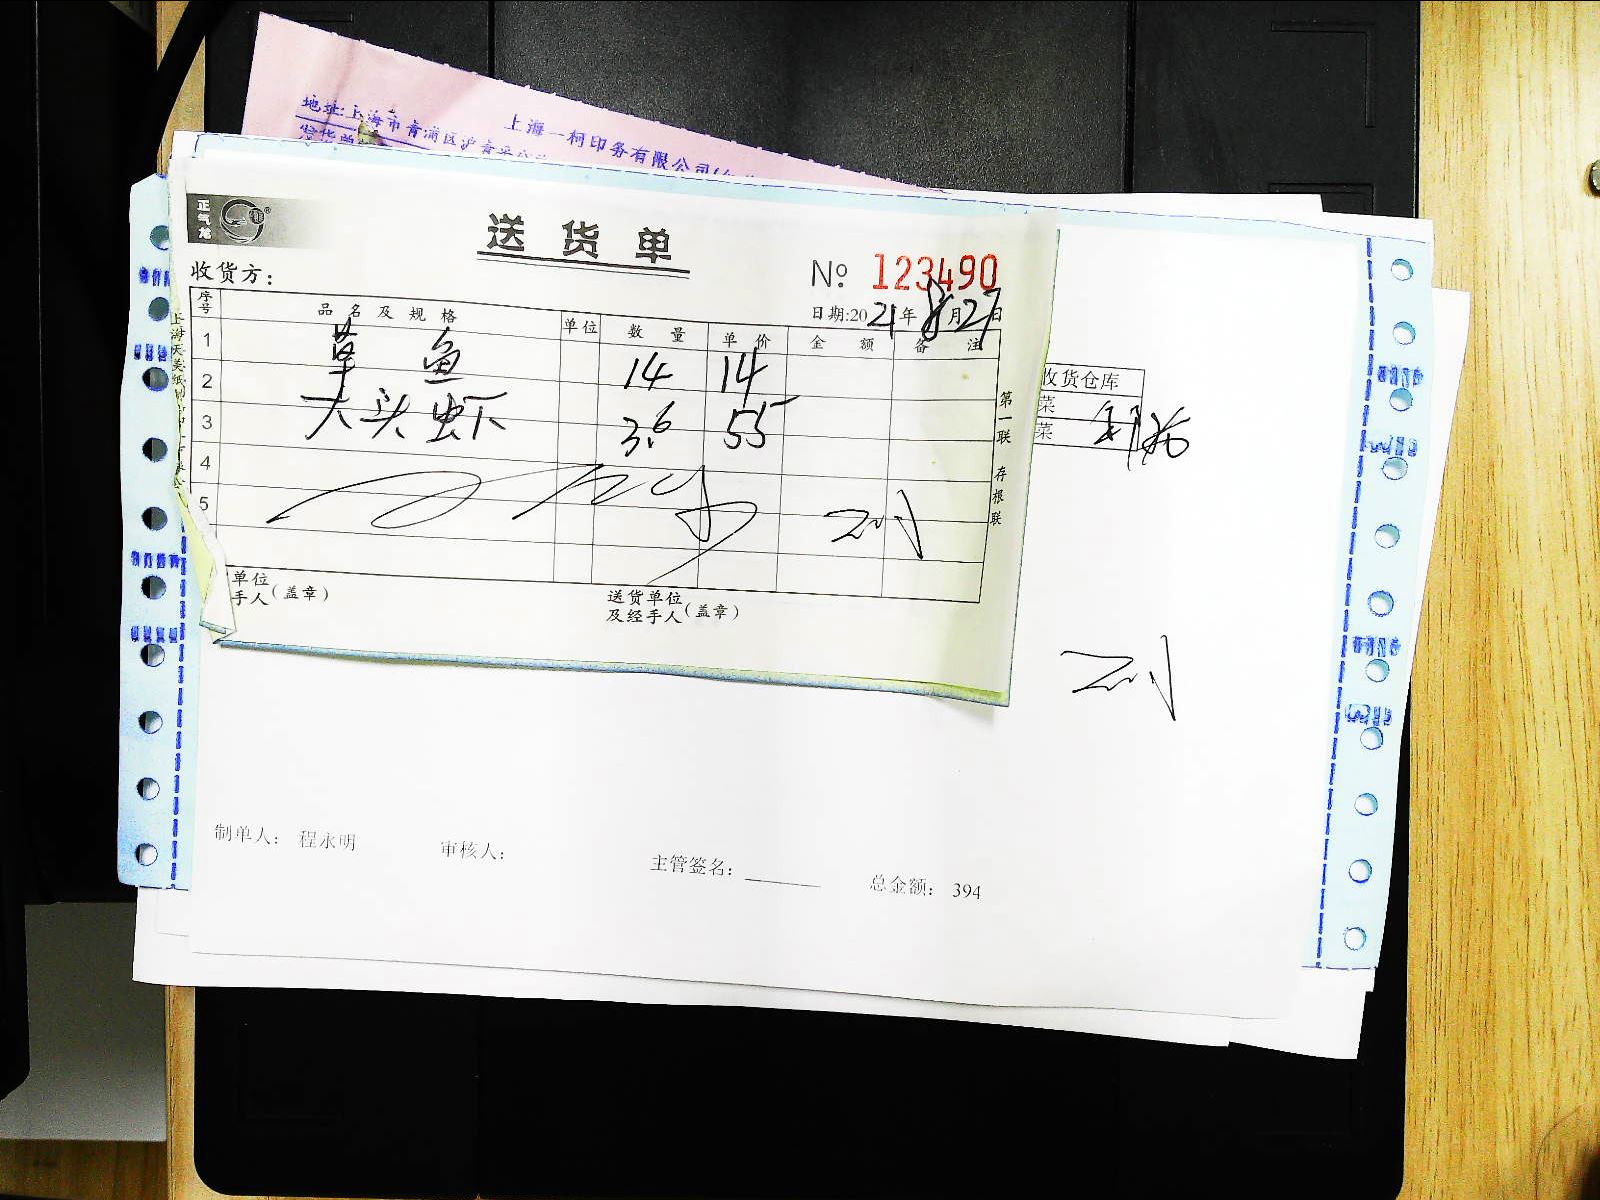 上海一柯印务有限公司
地址:上海市青浦区沪青平公
正气龙
送货单
№ 123490
收货方:
日期:2021年8月27日
序号 品名及规格 单位 数量 单价 金额 备注
1 草鱼 14 14
2 大头虾 3.6 55
3
4
5
第一联 存根联
收货仓库
菜
菜
单位
手人(盖章)
送货单位
及经手人(盖章)
制单人: 程永明
审核人:
主管签名:
总金额: 394